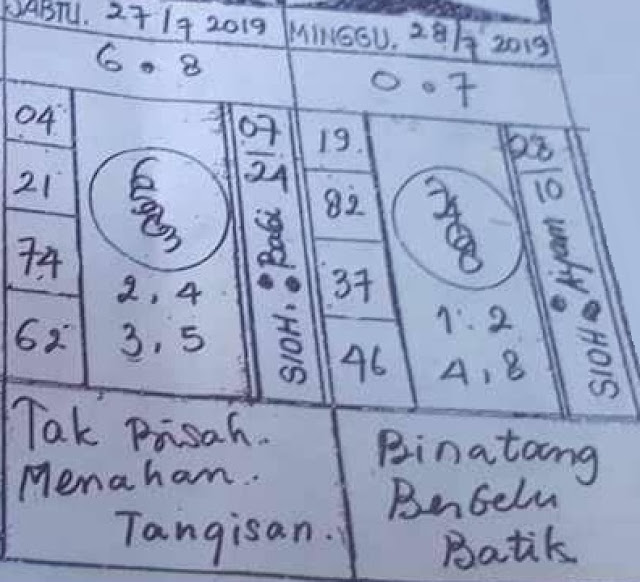 SABTU. 27/7 2019
6 . 8
04
21
74
62
2, 4
3, 5
07
24
SIOH. Babi
Tak Bisah.
Menahan.
Tangisan.
MINGGU. 28/7 2019
0 . 7
19
82
37
46
1. 2
4, 8
28
10
SIOH Ayam
Binatang
Berbelu
Batik